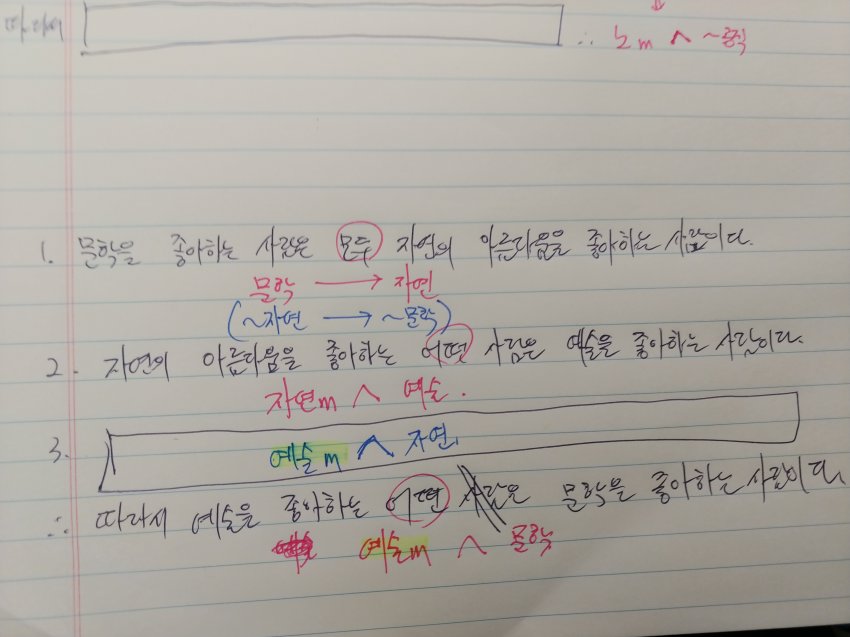 따라서
∴ 노m ∧ ~공직
1. 문학을 좋아하는 사람은 모두 자연의 아름다움을 좋아하는 사람이다.
문학 → 자연
(~자연 → ~문학)
2. 자연의 아름다움을 좋아하는 어떤 사람은 예술을 좋아하는 사람이다.
자연m ∧ 예술.
3.
예술m ∧ 자연.
∴ 따라서 예술을 좋아하는 어떤 사람은 문학을 좋아하는 사람이다.
예술m ∧ 문학